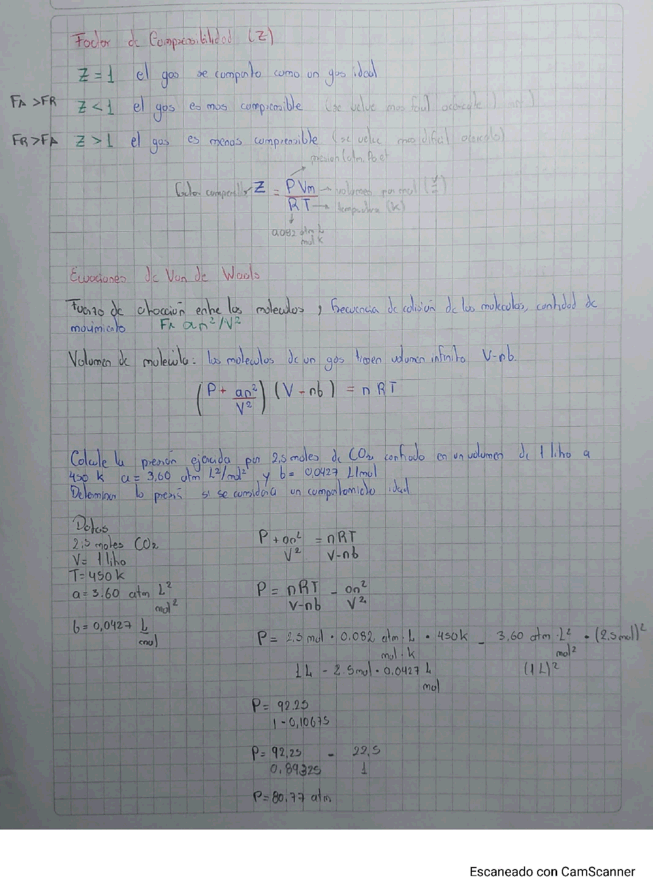 Factor de Compresibilidad (Z)
Z = 1 el gas se comporta como un gas ideal
FA > FR Z < 1 el gas es mas compresible (se vuelve mas facil
FR > FA Z > 1 el gas es menos compresible (se vuelve mas dificil
presion (atm,
Factor Z = P Vm → volumen por mol
R T → temperatura (K)
0.082 atm L
mol k
Ecuaciones de Van de Waals
Fuerza de atracción entre las moleculas, frecuencia de colisión de las moleculas, cantidad de
movimiento FA an²/V²
Volumen de molecula: las moleculas de un gas tienen volumen infinito V-nb
(P + an²/V²) (V - nb) = n RT
Calcule la presión ejercida por 2,5 moles de CO₂ confinado en un volumen de 1 litro a
450 k a = 3,60 atm L²/mol² y b = 0,0427 L/mol
Determinar la si se considera un ideal
Datos
2,5 moles CO₂
V = 1 litro
T = 450 k
a = 3.60 atm L²
mol²
b = 0,0427 L
mol
P + an² = nRT
V² V-nb
P = nRT - an²
V-nb V²
P = 2,5 mol · 0.082 atm · L · 450k - 3,60 atm · L² · (2,5 mol)²
mol · k mol²
1L - 2.5mol · 0.0427 L (1 L)²
mol
P = 92.25
1 - 0,10675
P = 92,25 - 22,5
0.89325 1
P = 80.77 atm
Escaneado con CamScanner